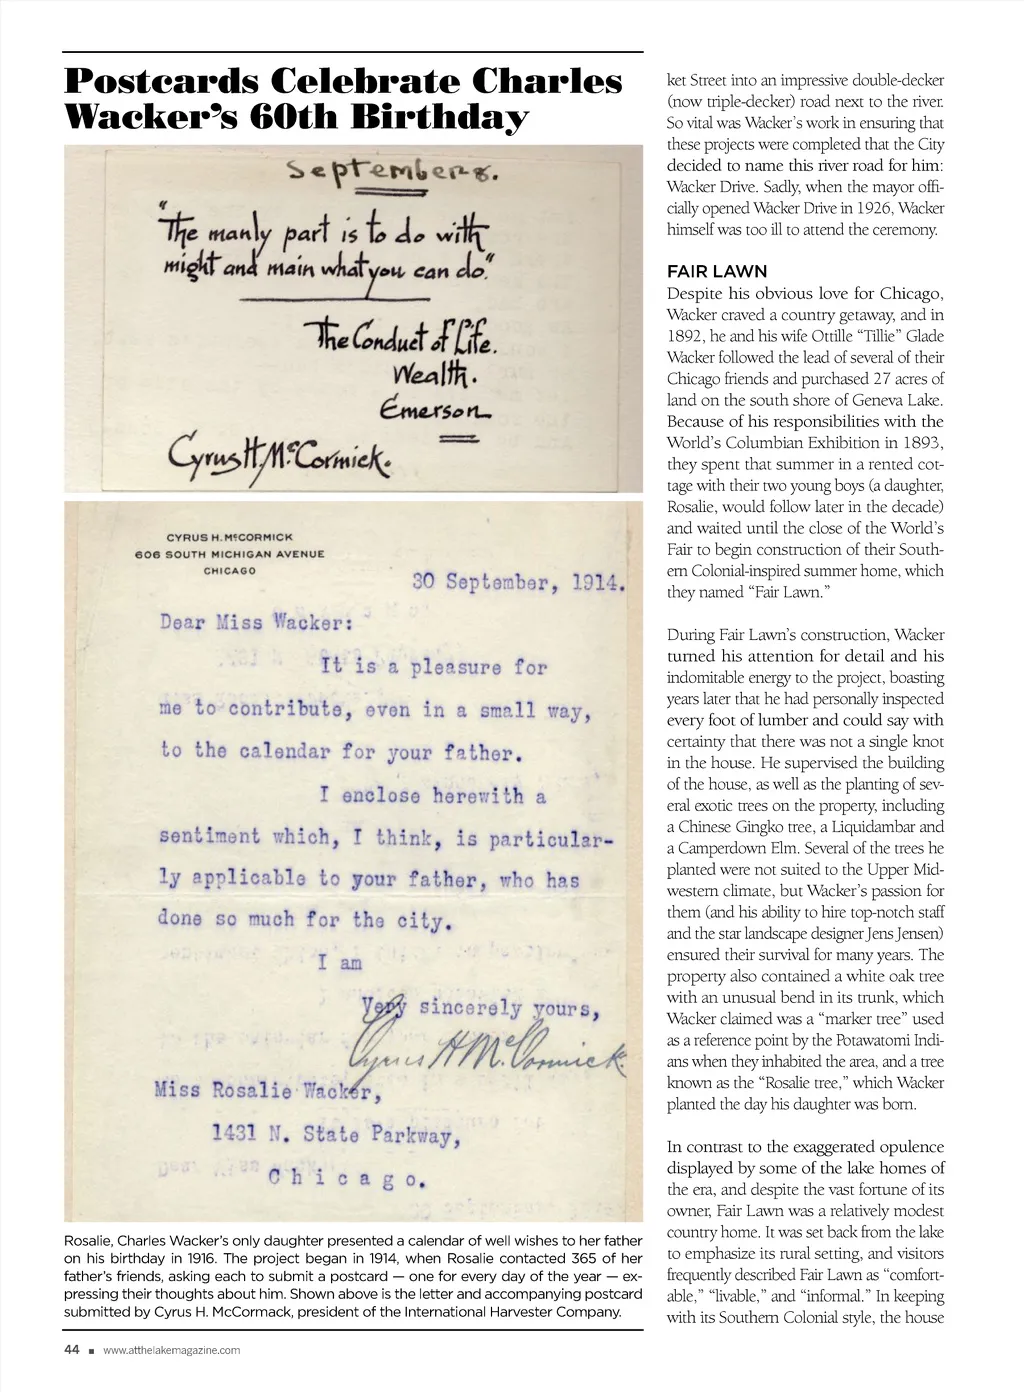 Postcards Celebrate Charles
Wacker's 60th Birthday
September 8.
"The manly part is to do with
might and main what you can do."
The Conduct of Life.
Wealth.
Emerson
Cyrus H. McCormick.
CYRUS H. McCORMICK
606 SOUTH MICHIGAN AVENUE
CHICAGO
30 September, 1914.
Dear Miss Wacker:
It is a pleasure for
me to contribute, even in a small way,
to the calendar for your father.
I enclose herewith a
sentiment which, I think, is particular-
ly applicable to your father, who has
done so much for the city.
I am
Very sincerely yours,
Cyrus H McCormick.
Miss Rosalie Wacker,
1431 N. State Parkway,
Chicago.
Rosalie, Charles Wacker's only daughter presented a calendar of well wishes to her father
on his birthday in 1916. The project began in 1914, when Rosalie contacted 365 of her
father's friends, asking each to submit a postcard — one for every day of the year — ex-
pressing their thoughts about him. Shown above is the letter and accompanying postcard
submitted by Cyrus H. McCormack, president of the International Harvester Company.
44 ■ www.atthelakemagazine.com
ket Street into an impressive double-decker
(now triple-decker) road next to the river.
So vital was Wacker's work in ensuring that
these projects were completed that the City
decided to name this river road for him:
Wacker Drive. Sadly, when the mayor offi-
cially opened Wacker Drive in 1926, Wacker
himself was too ill to attend the ceremony.
FAIR LAWN
Despite his obvious love for Chicago,
Wacker craved a country getaway, and in
1892, he and his wife Ottille "Tillie" Glade
Wacker followed the lead of several of their
Chicago friends and purchased 27 acres of
land on the south shore of Geneva Lake.
Because of his responsibilities with the
World's Columbian Exhibition in 1893,
they spent that summer in a rented cot-
tage with their two young boys (a daughter,
Rosalie, would follow later in the decade)
and waited until the close of the World's
Fair to begin construction of their South-
ern Colonial-inspired summer home, which
they named "Fair Lawn."
During Fair Lawn's construction, Wacker
turned his attention for detail and his
indomitable energy to the project, boasting
years later that he had personally inspected
every foot of lumber and could say with
certainty that there was not a single knot
in the house. He supervised the building
of the house, as well as the planting of sev-
eral exotic trees on the property, including
a Chinese Gingko tree, a Liquidambar and
a Camperdown Elm. Several of the trees he
planted were not suited to the Upper Mid-
western climate, but Wacker's passion for
them (and his ability to hire top-notch staff
and the star landscape designer Jens Jensen)
ensured their survival for many years. The
property also contained a white oak tree
with an unusual bend in its trunk, which
Wacker claimed was a "marker tree" used
as a reference point by the Potawatomi Indi-
ans when they inhabited the area, and a tree
known as the "Rosalie tree," which Wacker
planted the day his daughter was born.
In contrast to the exaggerated opulence
displayed by some of the lake homes of
the era, and despite the vast fortune of its
owner, Fair Lawn was a relatively modest
country home. It was set back from the lake
to emphasize its rural setting, and visitors
frequently described Fair Lawn as "comfort-
able," "livable," and "informal." In keeping
with its Southern Colonial style, the house